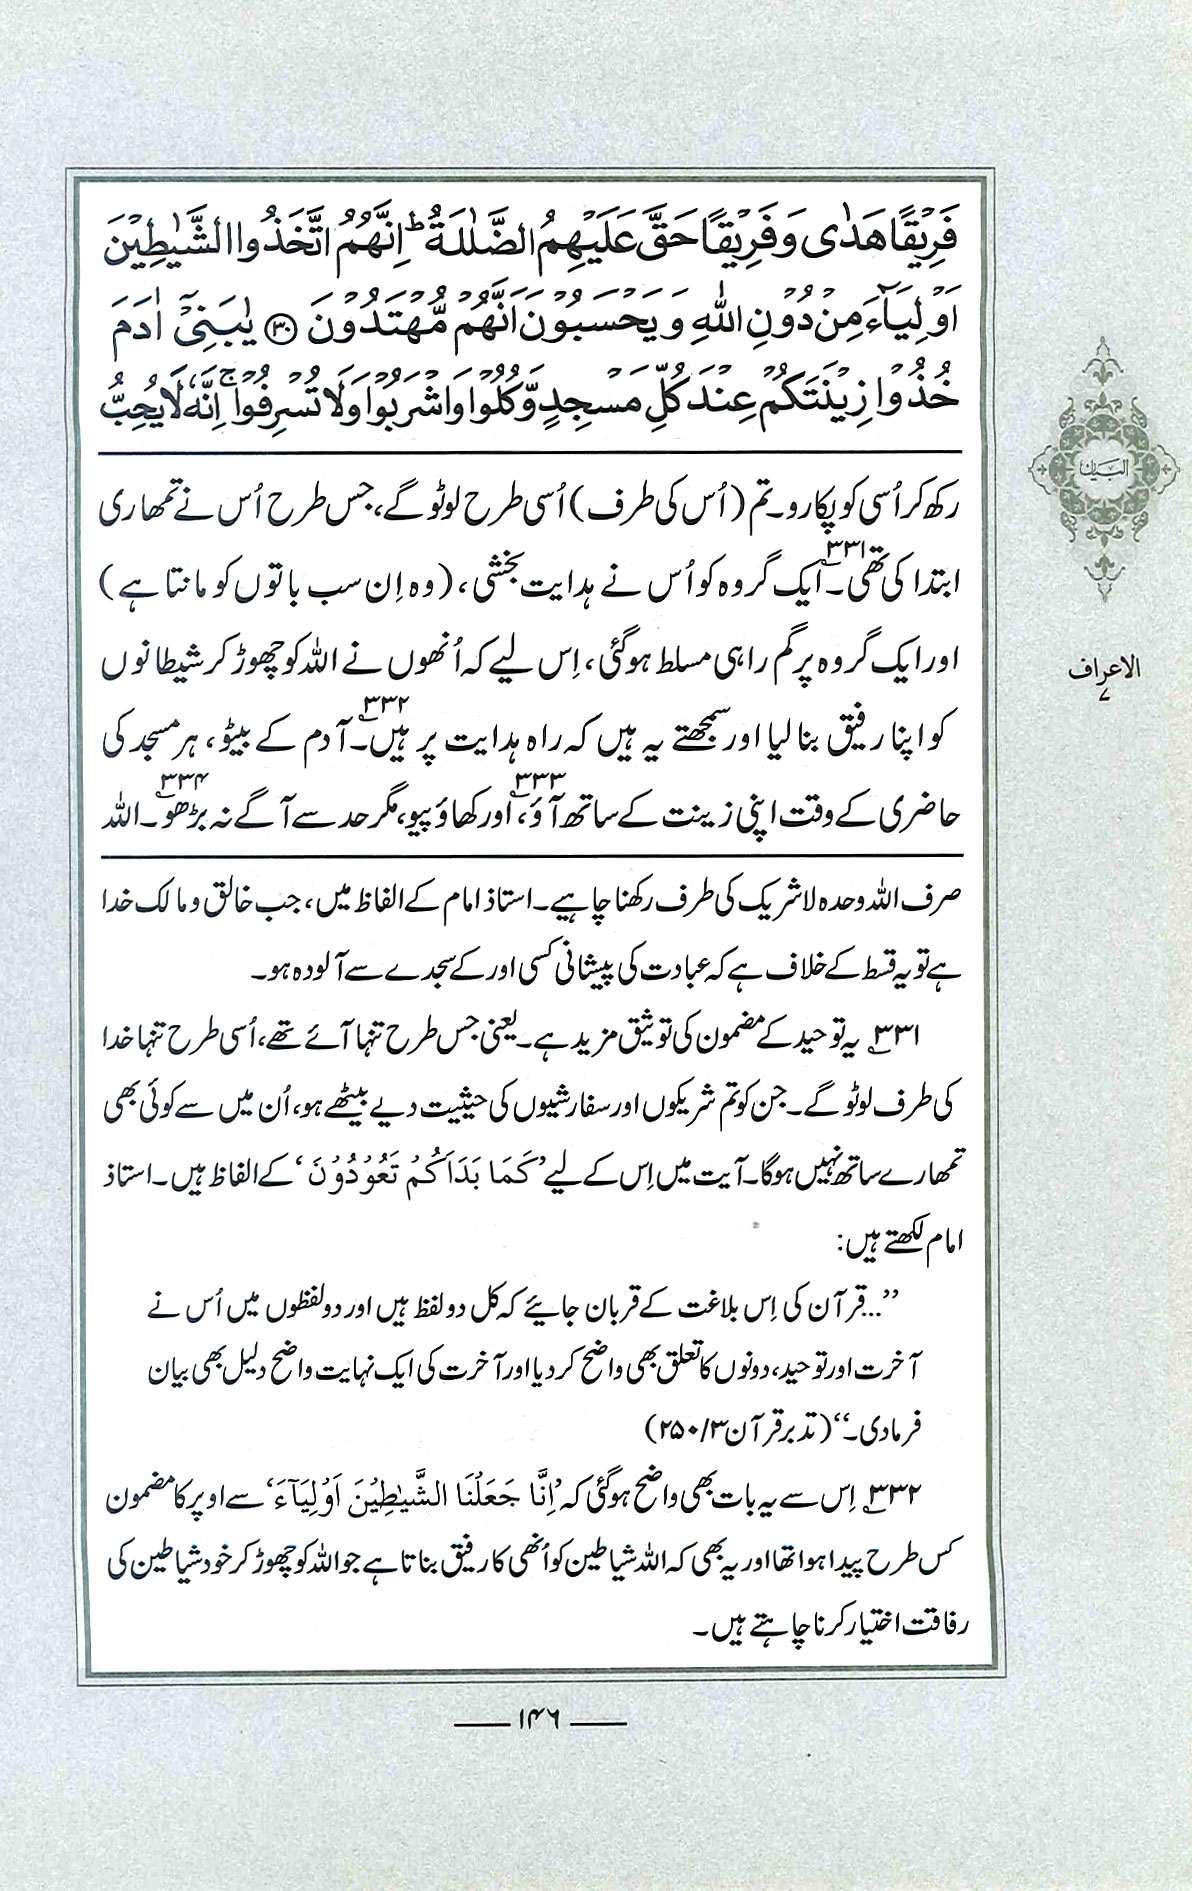 فَرِيْقًا هَدٰى وَ فَرِيْقًا حَقَّ عَلَيْهِمُ الضَّلٰلَةُ ؕ اِنَّهُمُ اتَّخَذُوا الشَّيٰطِيْنَ
اَوْلِيَآءَ مِنْ دُوْنِ اللّٰهِ وَ يَحْسَبُوْنَ اَنَّهُمْ مُّهْتَدُوْنَ ﴿۳۰﴾ يٰبَنِيْٓ اٰدَمَ
خُذُوْا زِيْنَتَكُمْ عِنْدَ كُلِّ مَسْجِدٍ وَّ كُلُوْا وَ اشْرَبُوْا وَ لَا تُسْرِفُوْا ۚ اِنَّهٗ لَا يُحِبُّ
البیان
الاعراف
۷
رکھ کر اُسی کو پکارو۔ تم (اُس کی طرف) اُسی طرح لوٹو گے، جس طرح اُس نے تمھاری
ابتدا کی تھی۔۳۳۱ ایک گروہ کو اُس نے ہدایت بخشی، (وہ اِن سب باتوں کو مانتا ہے)
اور ایک گروہ پر گم راہی مسلط ہو گئی، اِس لیے کہ اُنھوں نے اللہ کو چھوڑ کر شیطانوں
کو اپنا رفیق بنا لیا اور سمجھتے یہ ہیں کہ راہ ہدایت پر ہیں۔۳۳۲ آدم کے بیٹو، ہر مسجد کی
حاضری کے وقت اپنی زینت کے ساتھ آؤ،۳۳۳ اور کھاؤ پیو، مگر حد سے آگے نہ بڑھو۔۳۳۴ اللہ
صرف اللہ وحدہ لا شریک کی طرف رکھنا چاہیے۔ استاذ امام کے الفاظ میں، جب خالق و مالک خدا
ہے تو یہ قسط کے خلاف ہے کہ عبادت کی پیشانی کسی اور کے سجدے سے آلودہ ہو۔
۳۳۱ یہ توحید کے مضمون کی توثیق مزید ہے۔ یعنی جس طرح تنہا آئے تھے، اُسی طرح تنہا خدا
کی طرف لوٹو گے۔ جن کو تم شریکوں اور سفارشیوں کی حیثیت دیے بیٹھے ہو، اُن میں سے کوئی بھی
تمھارے ساتھ نہیں ہوگا۔ آیت میں اِس کے لیے ’كَمَا بَدَاَكُمْ تَعُوْدُوْنَ‘ کے الفاظ ہیں۔ استاذ
امام لکھتے ہیں:
’’...قرآن کی اِس بلاغت کے قربان جائیے کہ کل دو لفظ ہیں اور دو لفظوں میں اُس نے
آخرت اور توحید، دونوں کا تعلق بھی واضح کر دیا اور آخرت کی ایک نہایت واضح دلیل بھی بیان
فرما دی۔‘‘ (تدبر قرآن ۳/ ۲۵۰)
۳۳۲ اِس سے یہ بات بھی واضح ہو گئی کہ ’اِنَّا جَعَلْنَا الشَّيٰطِيْنَ اَوْلِيَآءَ‘ سے اوپر کا مضمون
کس طرح پیدا ہوا تھا اور یہ بھی کہ اللہ شیاطین کو اُنھی کا رفیق بناتا ہے جو اللہ کو چھوڑ کر خود شیاطین کی
رفاقت اختیار کرنا چاہتے ہیں۔
۱۴۶